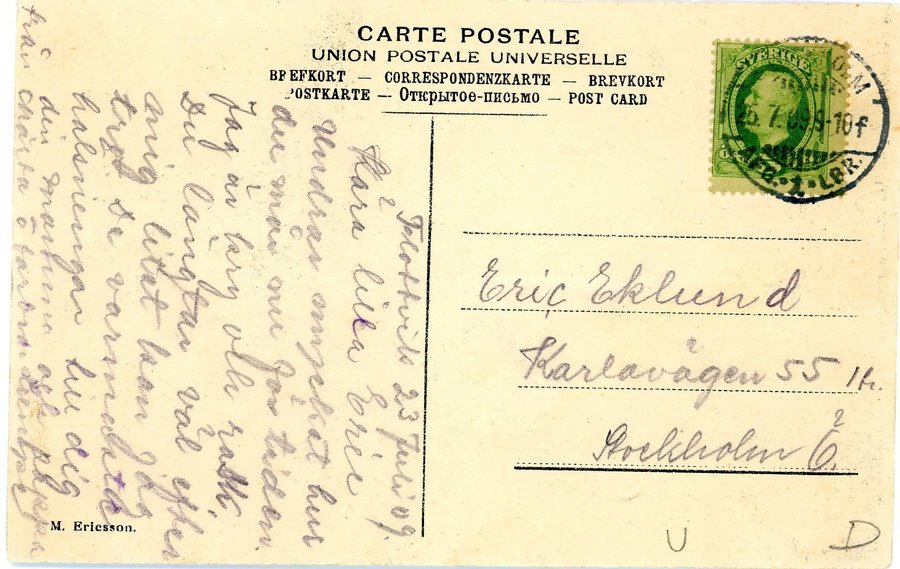 CARTE POSTALE
UNION POSTALE UNIVERSELLE
BREFKORT — CORRESPONDENZKARTE — BREVKORT
POSTKARTE — Открытое-письмо — POST CARD
SVERIGE
25.7.09.9-10f
AFG.1.LBR.
23 Juli 09.
Kära lilla Eric
Undrar mycket hur
du mår nu för tiden.
Jag är kry och rask.
Du längtar väl efter
mig litet kan jag
tro? De varmaste
hälsningar till dig
din mamma och pappa
från
Eric Eklund
Karlavägen 55 1tr.
Stockholm Ö.
M. Ericsson.
U
D